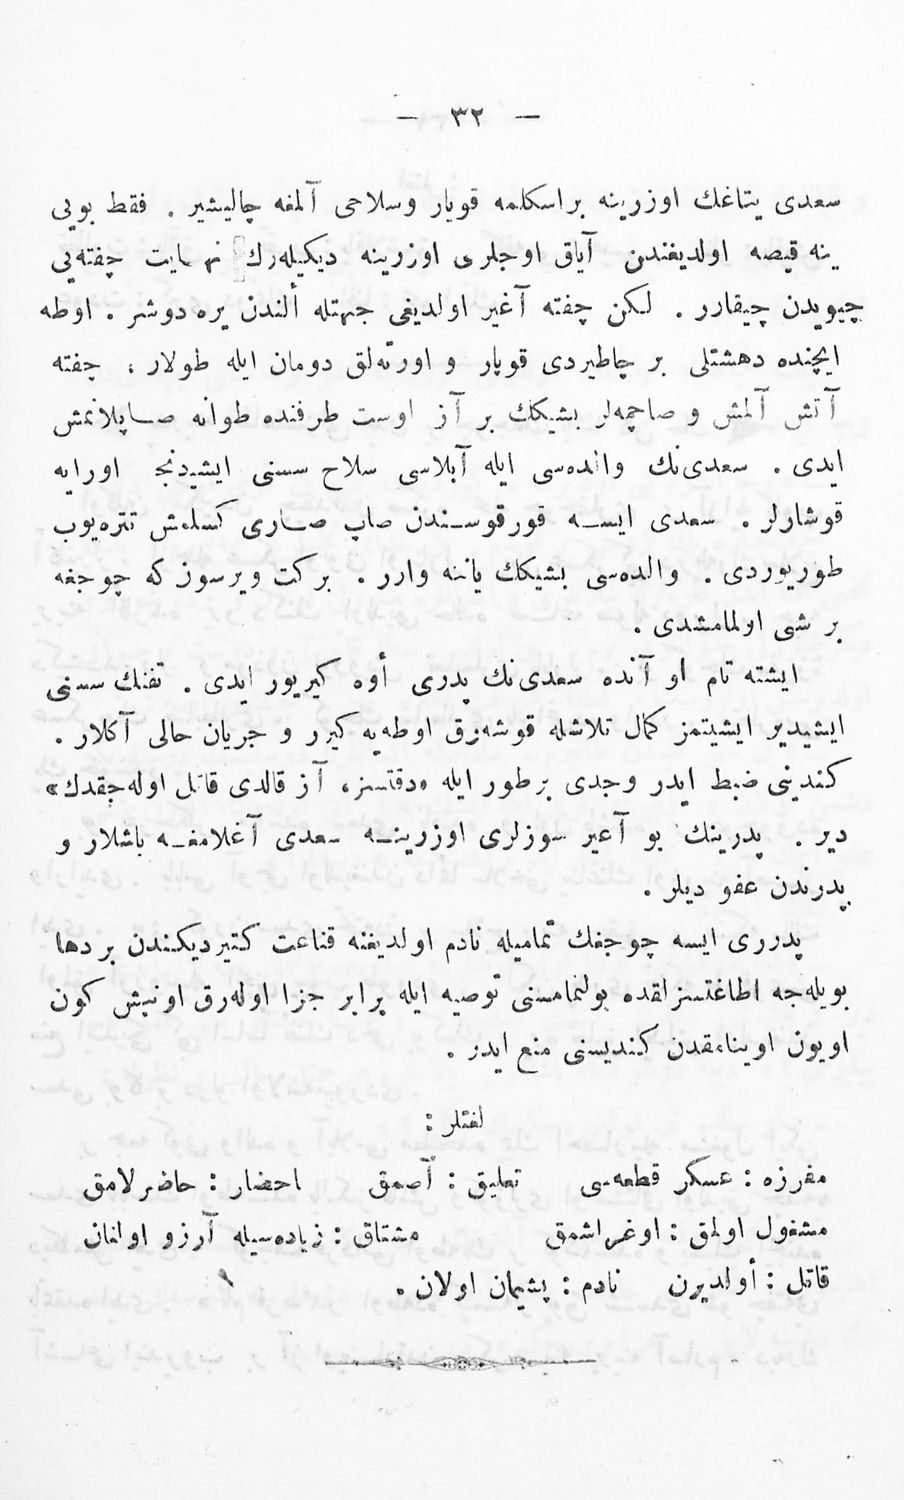 — ٣٢ —
سعدی یتاغك اوزرینه براسكلمه قویار وسلاحی آلمغه چالیشیر . فقط بویی
ینه قیصه اولدیغندن آیاق اوجلری اوزرینه دیكیله‌رك نهایت چفته‌یی
چیویدن چیقارر . لكن چفته آغیر اولدیغی جهتله ألندن یره دوشر . اوطه
ایچنده دهشتلی بر چاطیردی قوپار و اورته‌لق دومان ایله طولار ، چفته
آتش آلمش و صاچمه‌لر بشیكك بر آز اوست طرفنده طوانه صاپلانمش
ایدی . سعدی‌نك والده‌سی ایله آبلاسی سلاح سسنی ایشیدنجه اورایه
قوشارلر . سعدی ایسه قورقوسندن صاپ صاری كسلمش تتره‌یوب
طوریوردی . والده‌سی بشیكك یاننه وارر . بركت ویرسوز كه چوجغه
بر شی اولمامشدی .
ایشته تام او آنده سعدی‌نك پدری أوه كیریور ایدی . تفنك سسنی
ایشیدیر ایشیتمز كمال تلاشله قوشه‌رق اوطه‌یه كیرر و جریان حالی آكلار .
كندینی ضبط ایدر وجدی برطور ایله «دقتسز ، آز قالدی قاتل اوله‌جقدك»
دیر . پدرینك بو آغیر سوزلری اوزرینه سعدی آغلامغه باشلار و
پدرندن عفو دیلر .
پدرری ایسه چوجغك تمامیله نادم اولدیغنه قناعت كتیردیكندن بردها
بویله‌جه اطاغتسزلقده بولنمامسنی توصیه ایله برابر جزا اوله‌رق اونبش كون
اویون اوینامقدن كندیسنی منع ایدر .
لغتلر :
مفرزه : عسكر قطعه‌سی تعلیق : آصمق احضار : حاضرلامق
مشغول اولمق : اوغراشمق مشتاق : زیاده‌سیله آرزو اولنان
قاتل : أولدیرن نادم : پشیمان اولان .